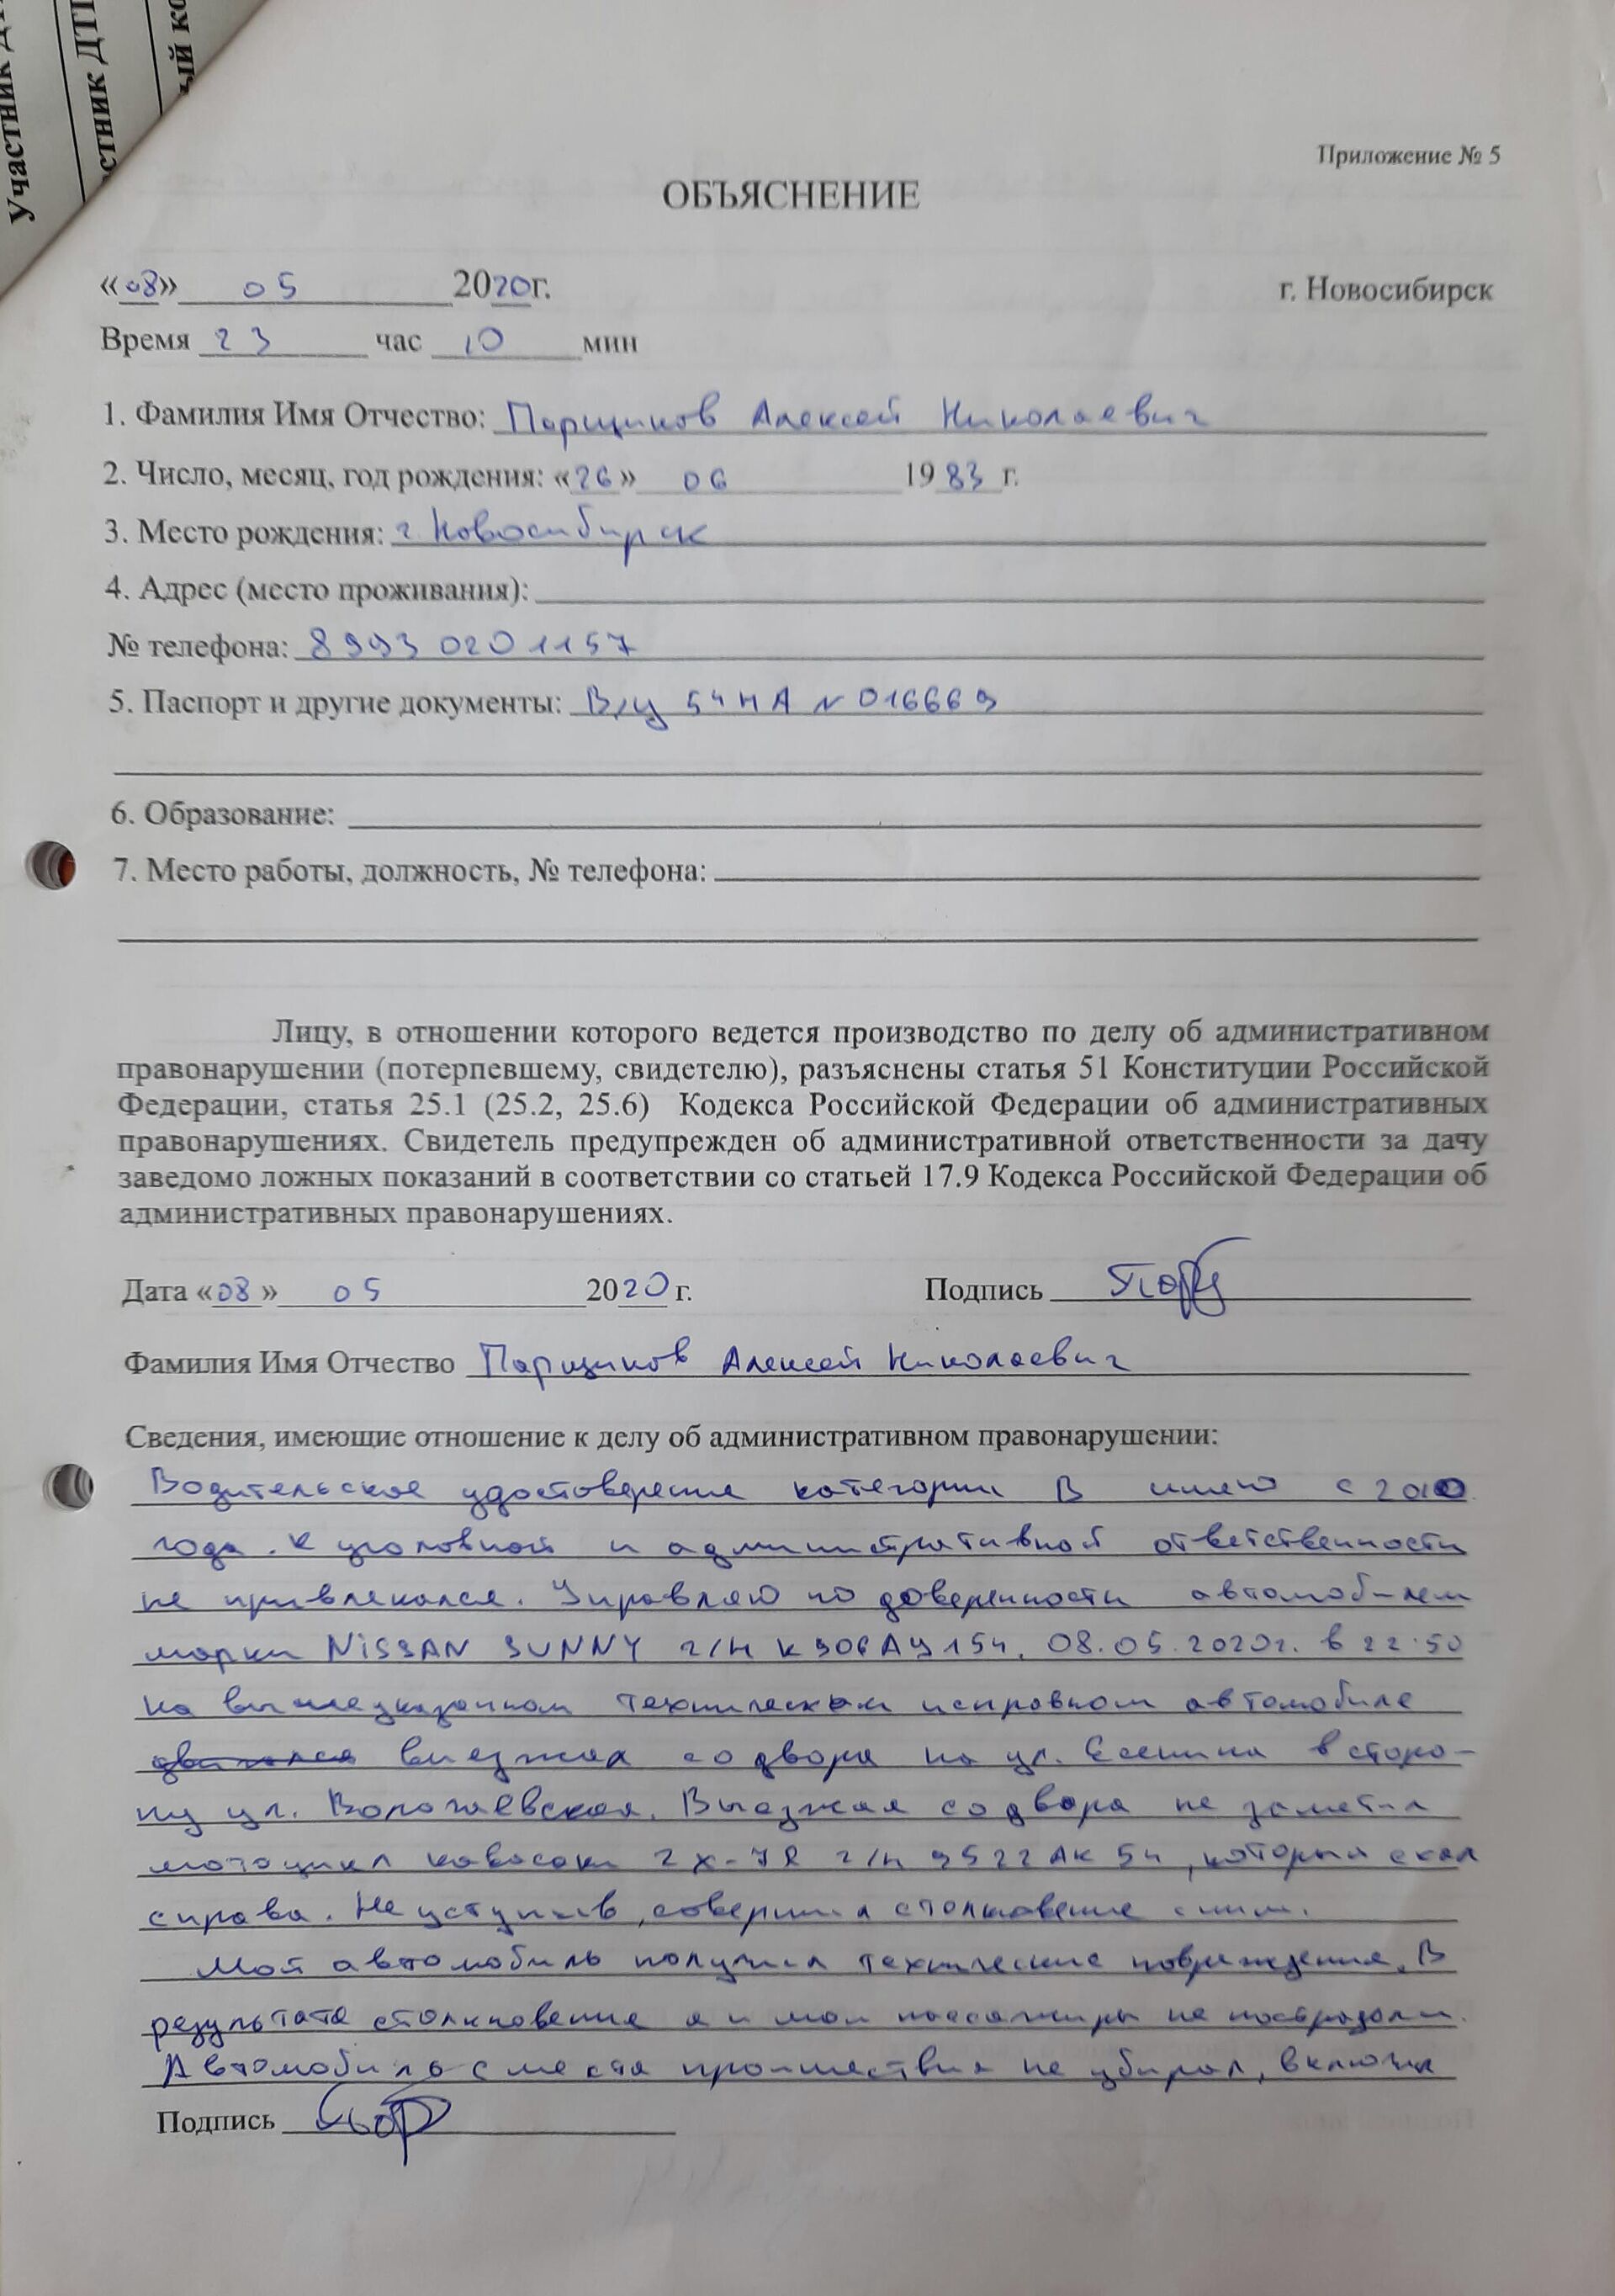 Участник ДТП
стник ДТП
ый ко
Приложение № 5
ОБЪЯСНЕНИЕ
«08» 05 2020г. г. Новосибирск
Время 23 час 10 мин
1. Фамилия Имя Отчество: Парщиков Алексей Николаевич
2. Число, месяц, год рождения: «26» 06 1983 г.
3. Место рождения: г. Новосибирск
4. Адрес (место проживания):
№ телефона: 8 993 020 11 57
5. Паспорт и другие документы: В/у 54 НА № 016669
6. Образование:
7. Место работы, должность, № телефона:
Лицу, в отношении которого ведется производство по делу об административном
правонарушении (потерпевшему, свидетелю), разъяснены статья 51 Конституции Российской
Федерации, статья 25.1 (25.2, 25.6) Кодекса Российской Федерации об административных
правонарушениях. Свидетель предупрежден об административной ответственности за дачу
заведомо ложных показаний в соответствии со статьей 17.9 Кодекса Российской Федерации об
административных правонарушениях.
Дата «08» 05 2020 г. Подпись
Фамилия Имя Отчество Парщиков Алексей Николаевич
Сведения, имеющие отношение к делу об административном правонарушении:
Водительское удостоверение категории В имею с 2010
года. К уголовной и административной ответственности
не привлекался. Управляю по доверенности автомобилем
марки NISSAN SUNNY г/н К906АУ154. 08.05.2020г. в 22:50
на вышеуказанном технически исправном автомобиле
двигался выезжая со двора на ул. Есенина в сторо-
ну ул. Волочаевская. Выезжая со двора не заметил
мотоцикл кавасаки ZX-7R г/н 9522АК54, который ехал
справа. Не уступив, совершил столкновение с ним.
Мой автомобиль получил технические повреждения. В
результате столкновения я и мои пассажиры не пострадали.
Автомобиль с места проишествия не убирал, включил
Подпись